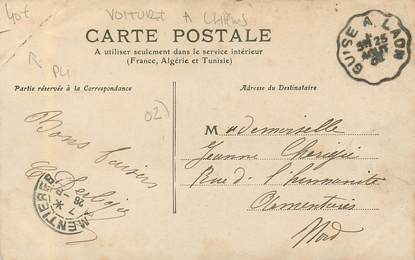 40€
VOITURE A CHIENS
CARTE POSTALE
A utiliser seulement dans le service intérieur
(France, Algérie et Tunisie)
GUISE A LAON
25
AOUT
Partie réservée à la Correspondance
Adresse du Destinataire
02)
Bons baisers
Mademoiselle
Jeanne
Rue de l'humanité
Armentières
Nord
MENTIERES